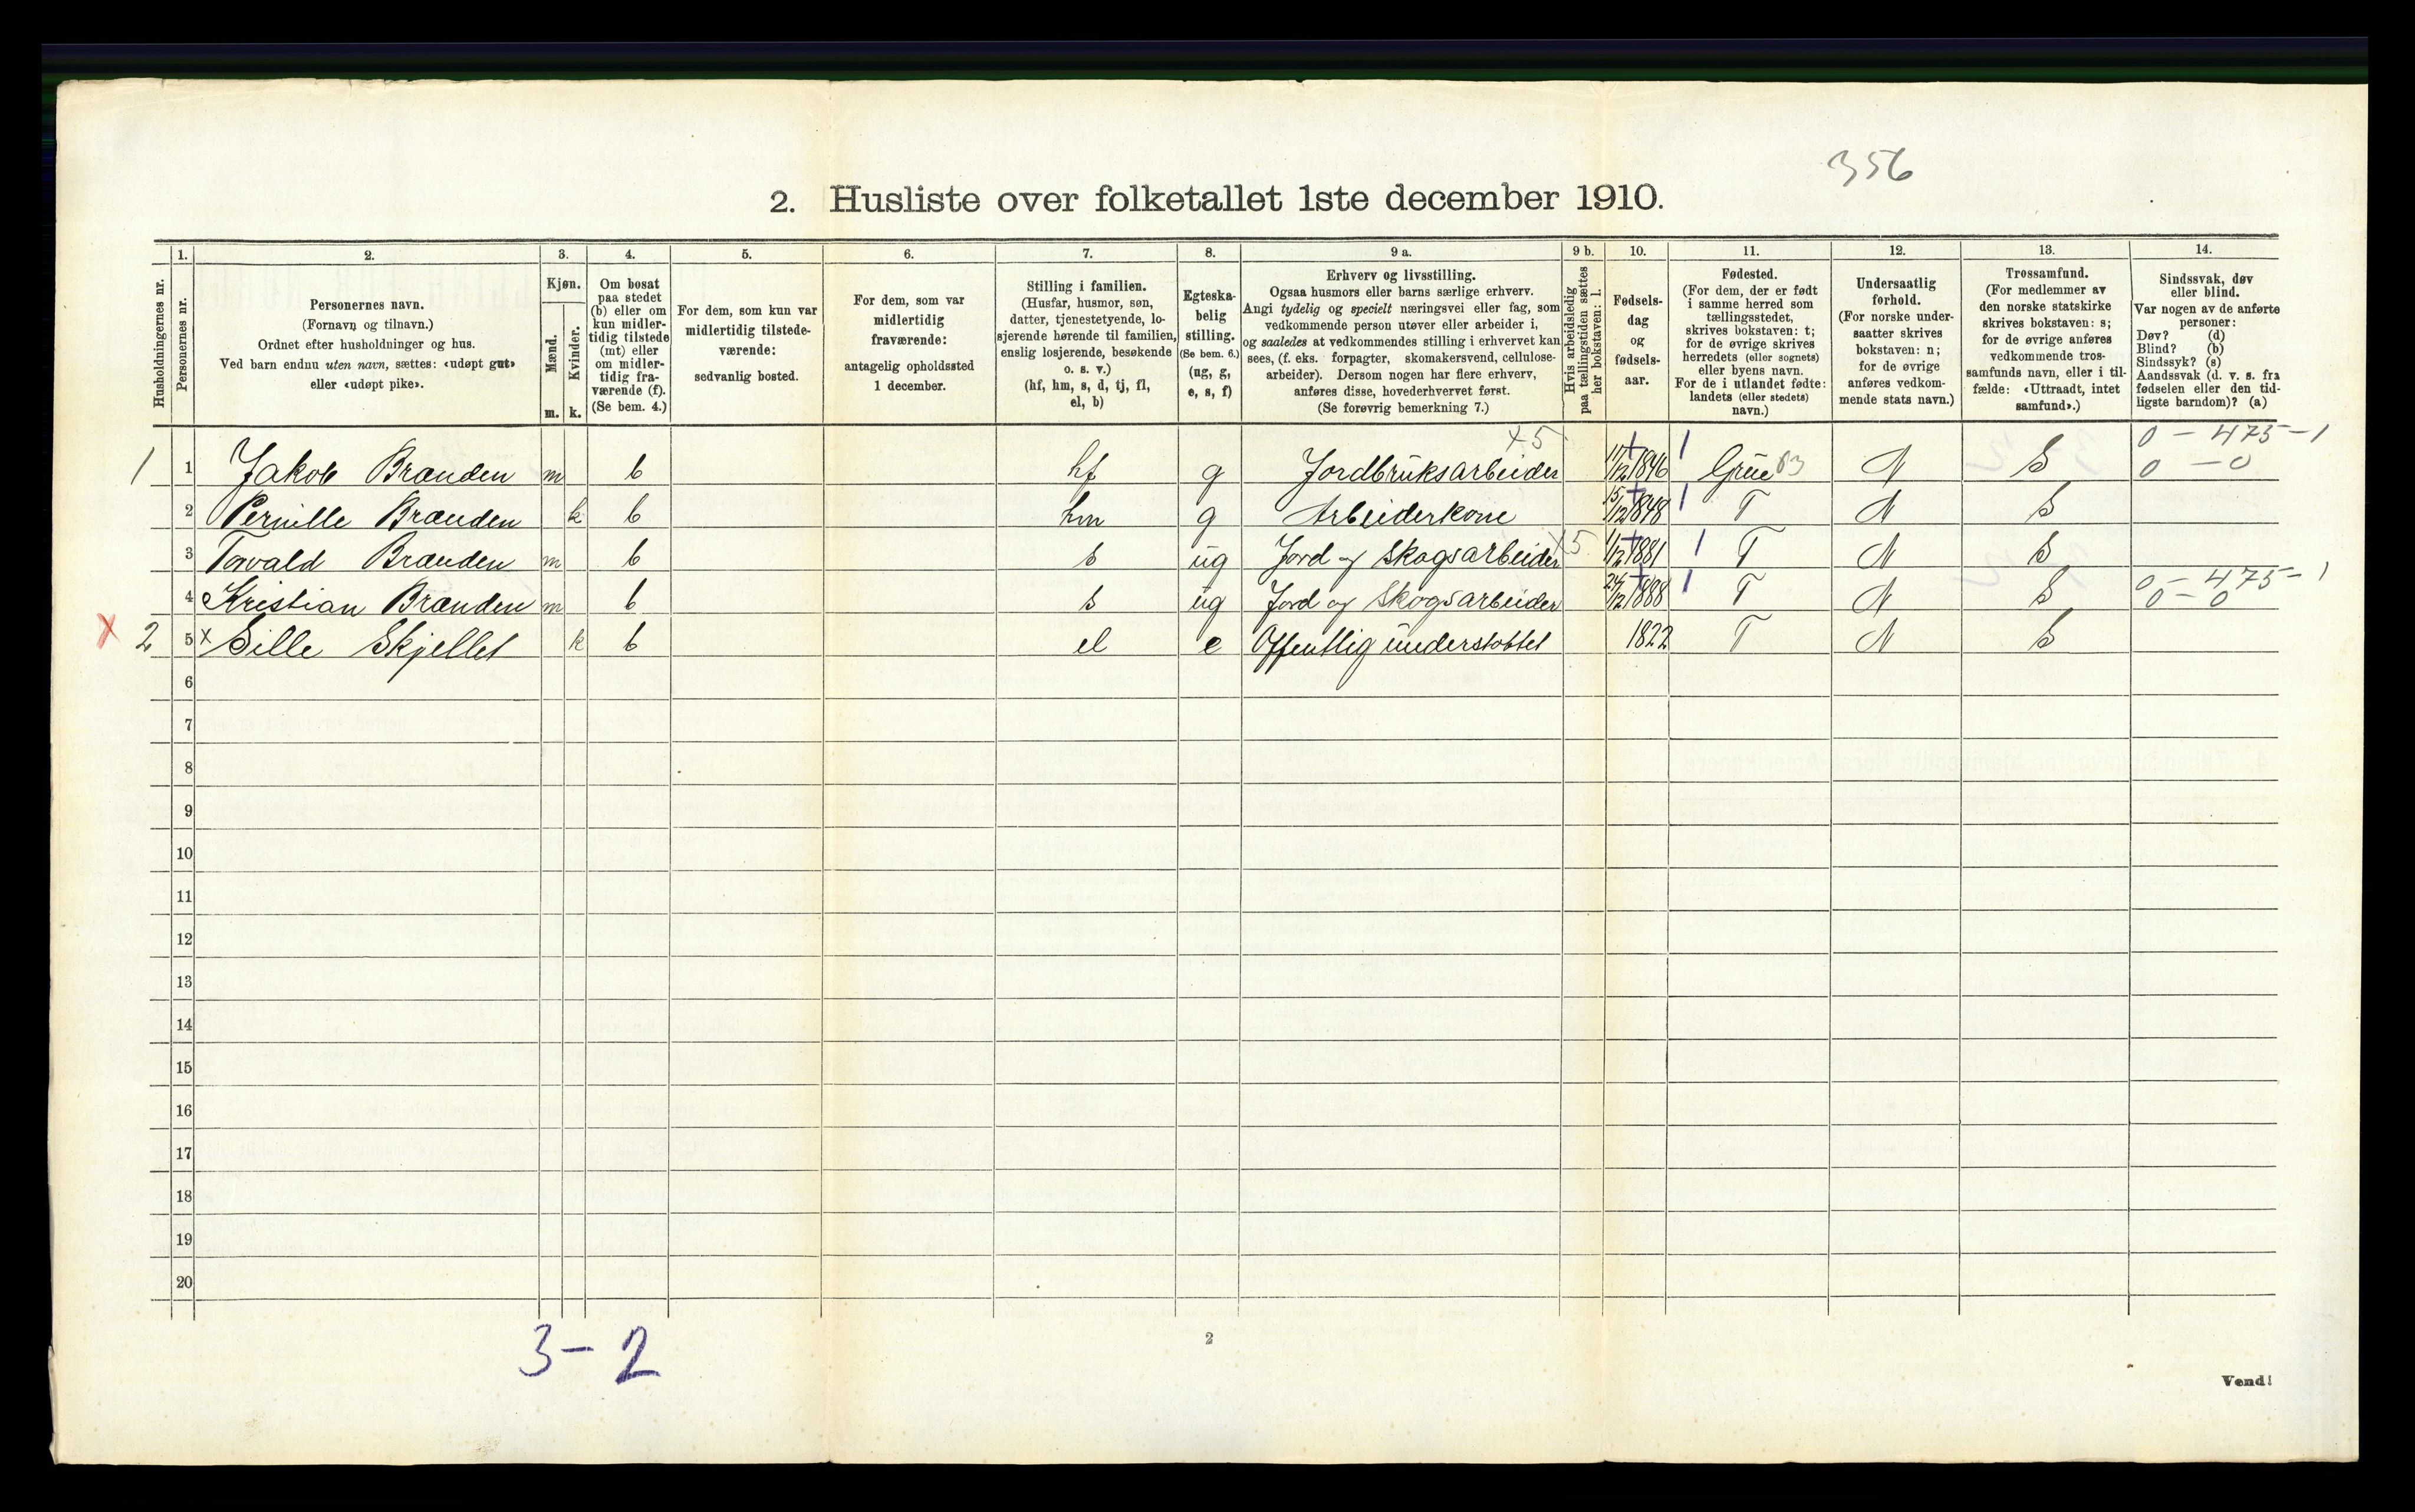 356
2. Husliste over folketallet 1ste december 1910.
Husholdningernes nr.
1.
Personernes nr.
2.
Personernes navn.
(Fornavn og tilnavn.)
Ordnet efter husholdninger og hus.
Ved barn endnu uten navn, sættes: «udøpt gut»
eller «udøpt pike».
3.
Kjøn.
Mænd.
m.
Kvinder.
k.
4.
Om bosat
paa stedet
(b) eller om
kun midler-
tidig tilstede
(mt) eller
om midler-
tidig fra-
værende (f).
(Se bem. 4.)
5.
For dem, som kun var
midlertidig tilstede-
værende:
sedvanlig bosted.
6.
For dem, som var
midlertidig
fraværende:
antagelig opholdssted
1 december.
7.
Stilling i familien.
(Husfar, husmor, søn,
datter, tjenestetyende, lo-
sjerende hørende til familien,
enslig losjerende, besøkende
o. s. v.)
(hf, hm, s, d, tj, fl,
el, b)
8.
Egteska-
belig
stilling.
(Se bem. 6.)
(ug, g,
e, s, f)
9 a.
Erhverv og livsstilling.
Ogsaa husmors eller barns særlige erhverv.
Angi tydelig og specielt næringsvei eller fag, som
vedkommende person utøver eller arbeider i,
og saaledes at vedkommendes stilling i erhvervet kan
sees, (f. eks. forpagter, skomakersvend, cellulose-
arbeider). Dersom nogen har flere erhverv,
anføres disse, hovederhvervet først.
(Se forøvrig bemerkning 7.)
9 b.
Hvis arbeidsledig
paa tællingstiden sættes
her bokstaven: l.
10.
Fødsels-
dag
og
fødsels-
aar.
11.
Fødested.
(For dem, der er født
i samme herred som
tællingsstedet,
skrives bokstaven: t;
for de øvrige skrives
herredets (eller sognets)
eller byens navn.
For de i utlandet fødte:
landets (eller stedets)
navn.)
12.
Undersaatlig
forhold.
(For norske under-
saatter skrives
bokstaven: n;
for de øvrige
anføres vedkom-
mende stats navn.)
13.
Trossamfund.
(For medlemmer av
den norske statskirke
skrives bokstaven: s;
for de øvrige anføres
vedkommende tros-
samfunds navn, eller i til-
fælde: «Uttraadt, intet
samfund».)
14.
Sindssvak, døv
eller blind.
Var nogen av de anførte
personer:
Døv? (d)
Blind? (b)
Sindssyk? (s)
Aandssvak (d. v. s. fra
fødselen eller den tid-
ligste barndom)? (a)
x5 0 - 475 - 1
1 1 Jakob Brænden m b hf g Jordbruksarbeider 17/12 1846 Grue 03 N S 0 - 0
2 Pernille Brænden k b hm g Arbeiderkone 15/12 1848 T N S
3 Torvald Brænden m b s ug Jord og Skogsarbeider x5 1/12 1881 T N S
0 - 475 - 1
4 Kristian Brænden m b s ug Jord og Skogsarbeider 24/12 1888 T N S 0 - 0
x 2 5 x Sille Skjellet k b el e Offentlig understøttet 1822 T N S
6
7
8
9
10
11
12
13
14
15
16
17
18
19
20
3 - 2
2
Vend!